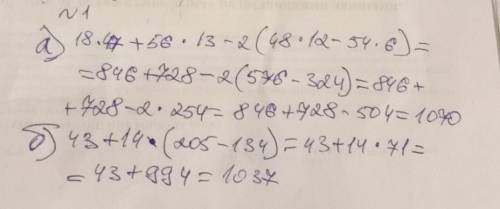 №1
а) 18·47+56·13-2(48·12-54·6)=
=846+728-2(576-324)=846+
+728-2·254=846+728-504=1070
б) 43+14·(205-134)=43+14·71=
=43+994=1037